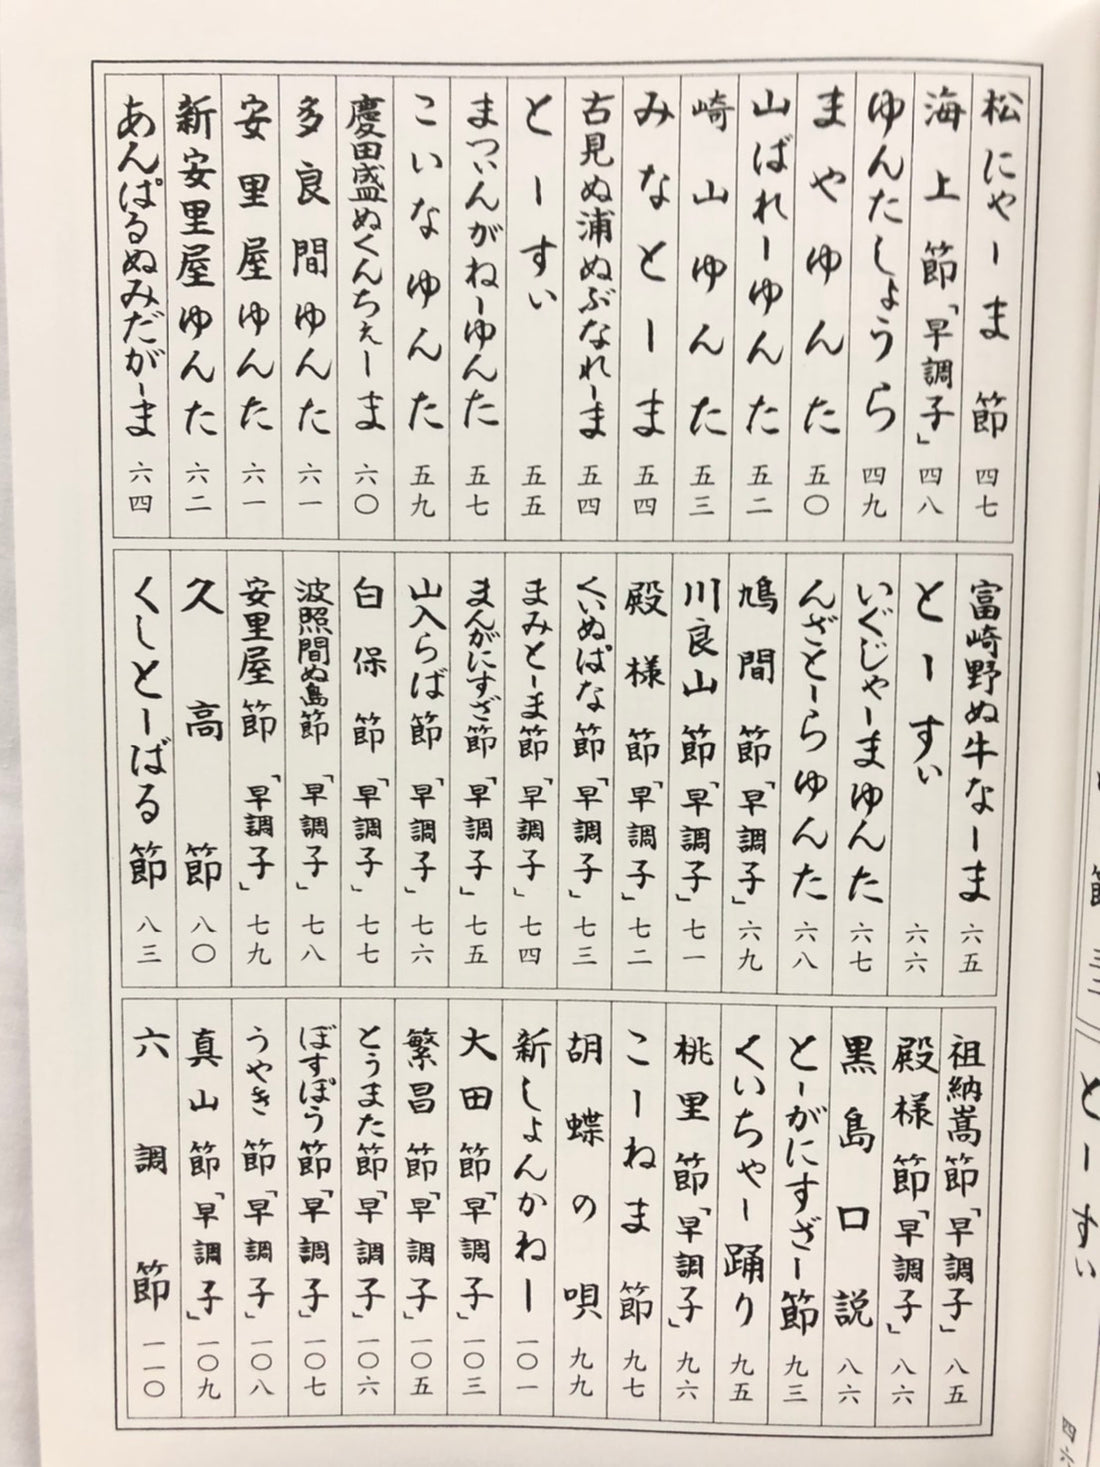 松にゃーま節 四七
海上節「早調子」 四八
ゆんたしょうら 四九
まやゆんた 五〇
山ばれーゆんた 五二
崎山ゆんた 五三
みなとーま 五四
古見ぬ浦ぬぶなれーま 五四
とーすぃ 五五
まついんがねーゆんた 五七
こいなゆんた 五九
慶田盛ぬくんちぇーま 六〇
多良間ゆんた 六一
安里屋ゆんた 六一
新安里屋ゆんた 六二
あんぱるぬみだがーま 六四
富崎野ぬ牛なーま 六五
とーすぃ 六六
いぐじゃーまゆんた 六七
んざとーらゆんた 六八
鳩間節「早調子」 六九
川良山節「早調子」 七一
殿様節「早調子」 七二
くいぬぱな節「早調子」 七三
まみとーま節「早調子」 七四
まんがにすざ節「早調子」 七五
山入らば節「早調子」 七六
白保節「早調子」 七七
波照間ぬ島節「早調子」 七八
安里屋節「早調子」 七九
久高節 八〇
くしとーばる節 八三
祖納嵩節「早調子」 八五
殿様節「早調子」 八六
黒島口説 八六
とーがにすざー節 九三
くいちゃー踊り 九五
桃里節「早調子」 九六
こーねま節 九七
胡蝶の唄 九九
新しょんかねー 一〇一
大田節「早調子」 一〇三
繁昌節「早調子」 一〇五
とぅまた節「早調子」 一〇六
ぼすぽう節「早調子」 一〇七
うやき節「早調子」 一〇八
真山節「早調子」 一〇九
六調節 一一〇
とーすぃ